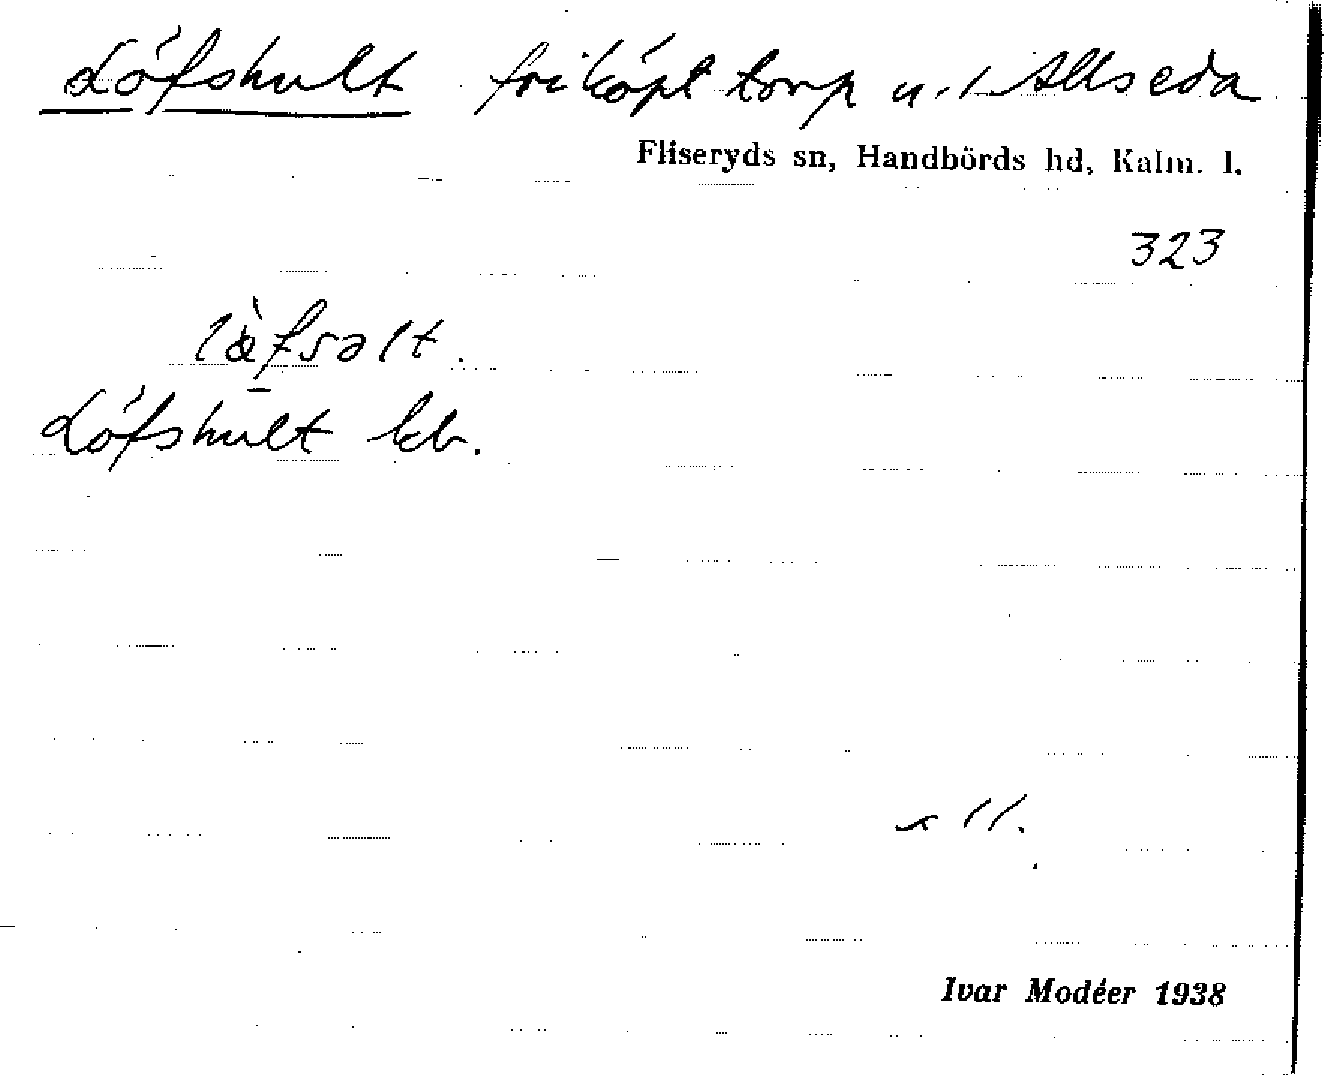 Löfshult friköpt torp u. 1 Allseda
Fliseryds sn, Handbörds hd, Kalm. l.
323
Löfshult kb.
Ivar Modéer 1938